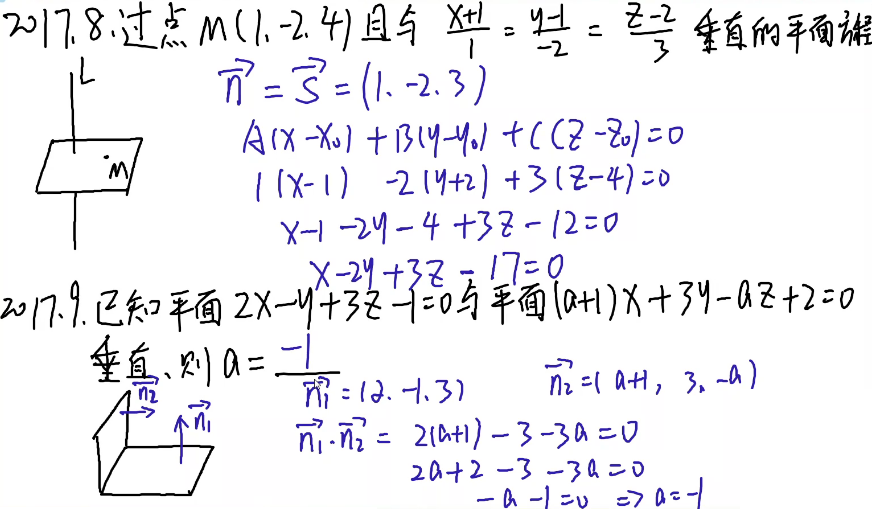 2017.8.过点M(1.-2.4)且与 (x+1)/1 = (y-1)/-2 = (z-2)/3 垂直的平面方程
L
n⃗ = s⃗ = (1.-2.3)
A(x-x₀)+B(y-y₀)+C(z-z₀)=0
M
1(x-1) -2(y+2)+3(z-4)=0
x-1-2y-4+3z-12=0
x-2y+3z-17=0
2017.9.已知平面2x-y+3z-1=0与平面(a+1)x+3y-az+2=0
垂直、则a=-1
n₂⃗ n₁⃗
n₁⃗=(2.-1.3) n₂⃗=(a+1, 3.-a)
n₁⃗·n₂⃗= 2(a+1)-3-3a=0
2a+2-3-3a=0
-a-1=0 => a=-1